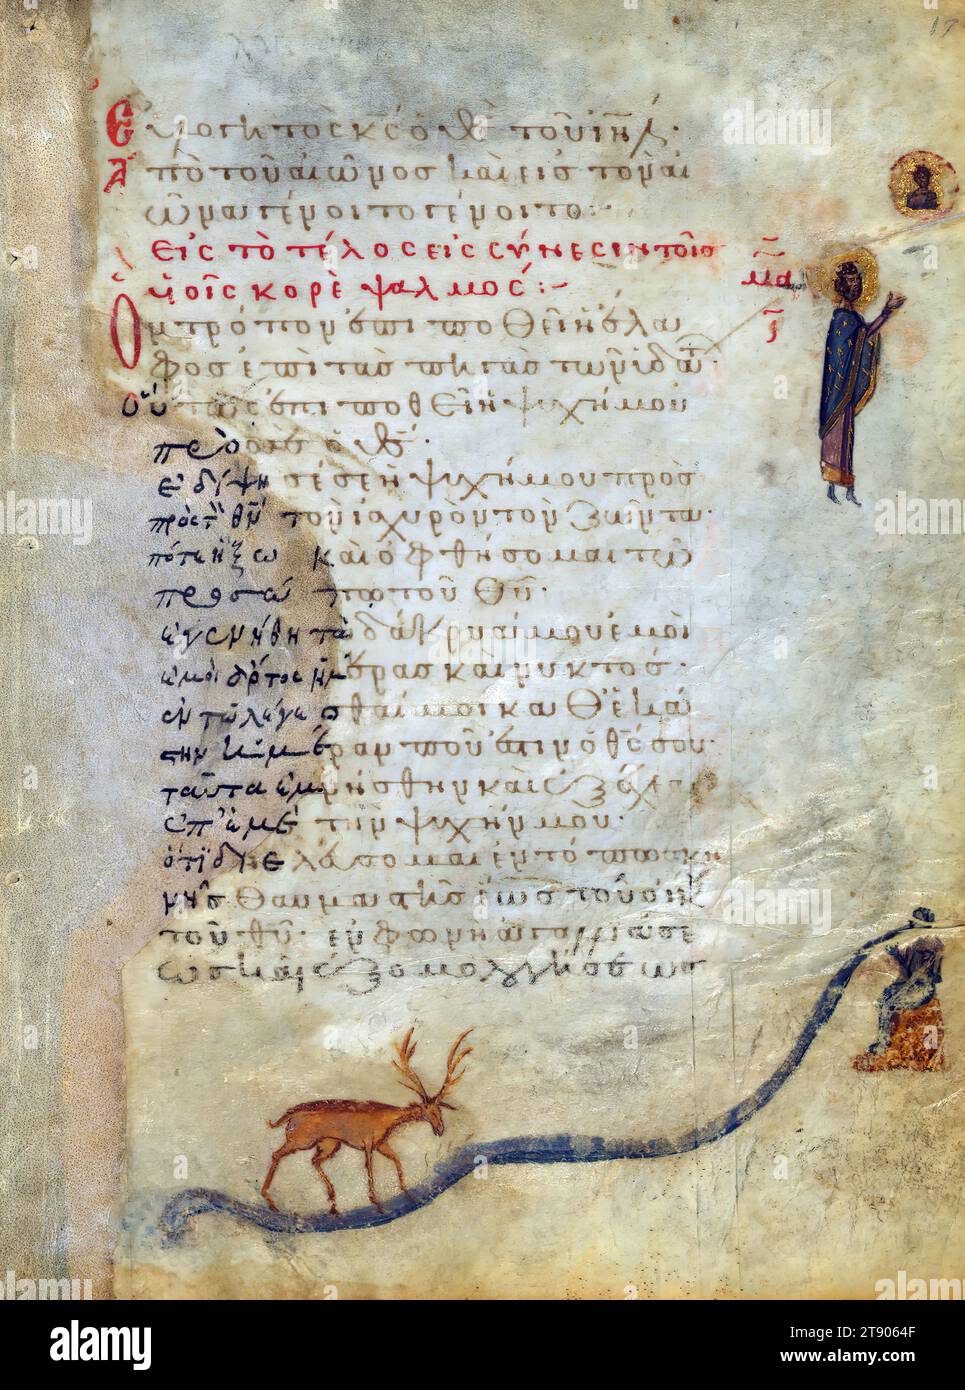 17
Εὐλογητὸς κς ὁ θς τοῦ ιηλ·
ἀπὸ τοῦ αἰῶνος καὶ εἰς τὸν αἰ
ῶνα γένοιτο γένοιτο:·
Εἰς τὸ τέλος εἰς σύνεσιν τοῖς
ὑοῖς κορὲ ψαλμός:-
μα
Ὃν τρόπον ἐπιποθεῖ ἡ ἔλα
φος ἐπὶ τὰς πηγὰς τῶν ὑδάτ
οὕτως ἐπιποθεῖ ἡ ψυχή μου
πρὸς σε ὁ θς·
ἐδίψησέ σε ἡ ψυχή μου πρὸς
τὸν ἰσχυρὸν τὸν ζῶντα·
πότε ἥξω καὶ ὀφθήσομαι τῶ
προσώπω τοῦ θυ·
ἐγενήθη τὰ δάκρυά μου ἐμοὶ
ἄρτος ἡμέρας καὶ νυκτός·
ἐν τῶ λέγεσθαί μοι καθ' ἑκάσ
την ἡμέραν ποῦ ἐστιν ὁ θς σου·
ταῦτα ἐμνήσθην καὶ ἐξέχεα
ἐπ' ἐμὲ τὴν ψυχήν μου·
ὅτι διελεύσομαι ἐν τόπω σκη
νῆς θαυμαστῆς ἕως τοῦ οἴκ
τοῦ θυ· ἐν φωνῆ ἀγαλλιάσε
ως καὶ ἐξομολογήσεως
alamy
Image ID: 2T9064F
www.alamy.com